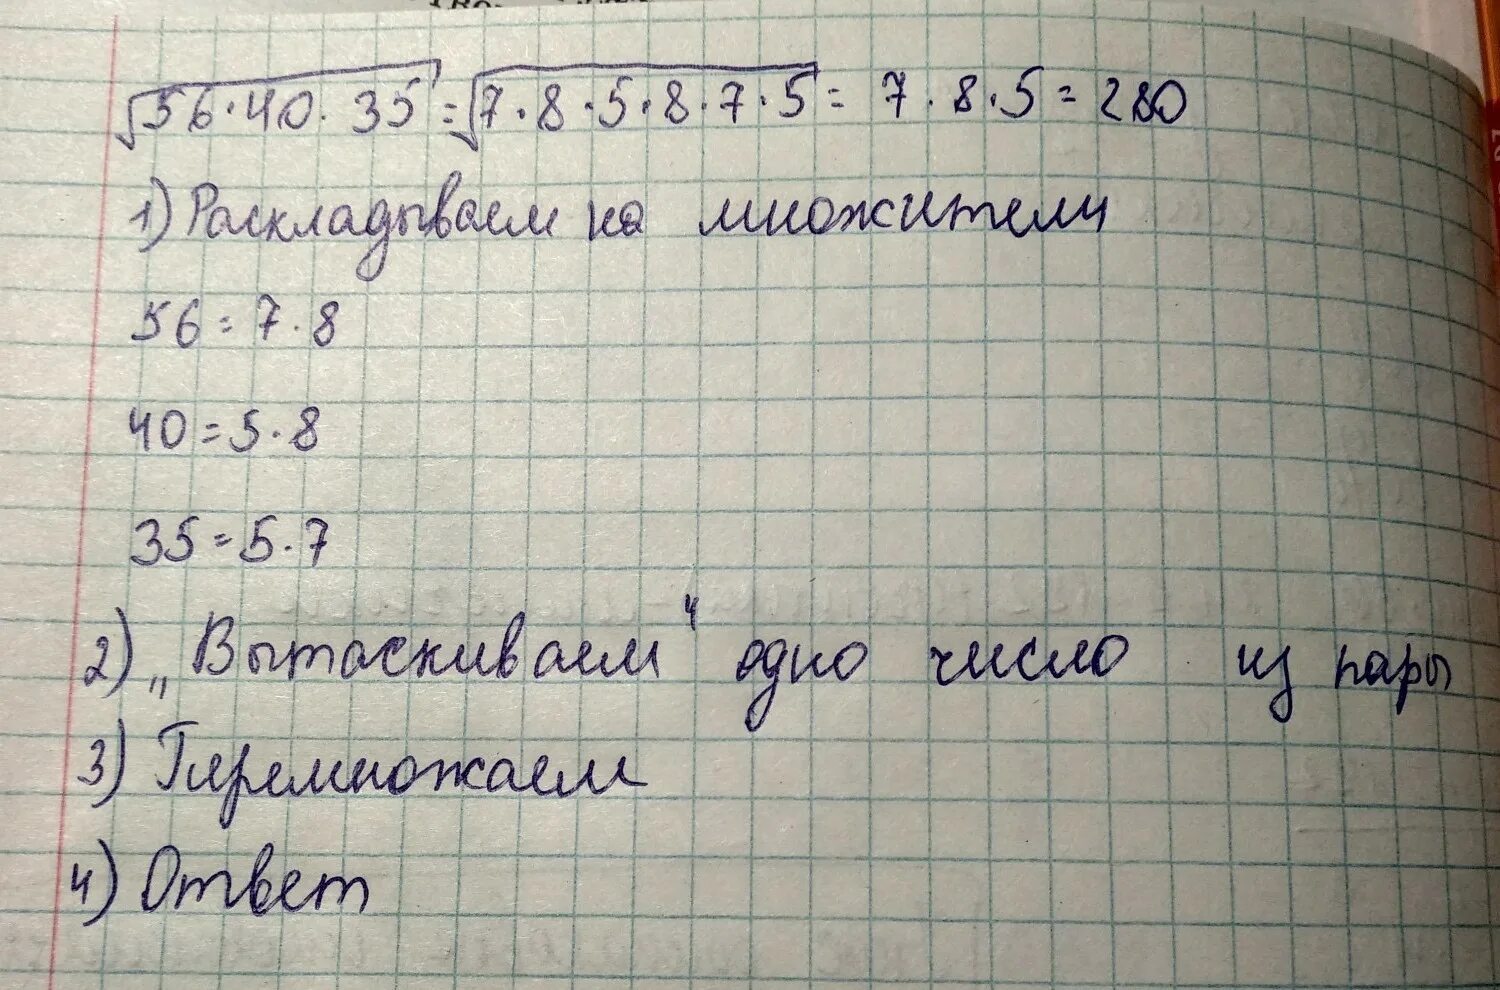 √56·40·35 = √7·8·5·8·7·5 = 7·8·5 = 280
1) Раскладываем на множители
56 = 7·8
40 = 5·8
35 = 5·7
2) „Вытаскиваем“ одно число из пары
3) Перемножаем
4) Ответ